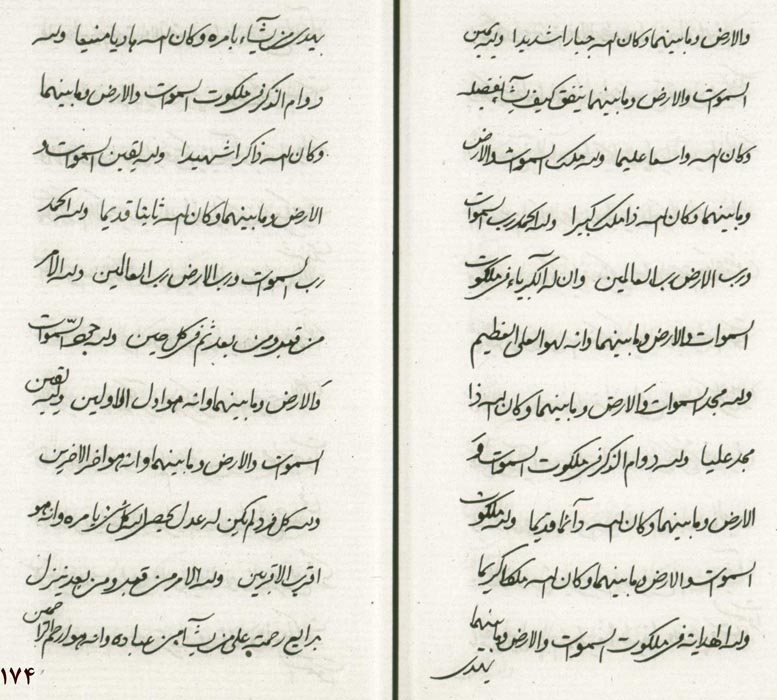 والارض وما بينهما وكان الله جبارا شديدا ولله يمين
السموات والارض وما بينهما ينفق كيف يشآء بفضله
وكان الله واسعا عليما ولله ملك السموات والارض
وما بينهما وكان الله ذا ملك كبيرا ولله الحمد رب السموات
ورب الارض رب العالمين وان له الكبرياء في ملكوت
السموات والارض وما بينهما وانه لهو العلى العظيم
ولله مجد السموات والارض وما بينهما وكان الله ذا
مجد عليا ولله دوام الذكر في ملكوت السموات و
الارض وما بينهما وكان الله دآئما قديما ولله ملكوت
السموات والارض وما بينهما وكان الله ملكا كريما
ولله الهداية في ملكوت السموات والارض وما بينهما
يهدى
يهدى من يشآء بامره وكان الله هاديا منيعا ولله
دوام الذكر في ملكوت السموات والارض وما بينهما
وكان الله ذاكرا شهيدا ولله يقين السموات و
الارض وما بينهما وكان الله ثابتا قديما ولله الحمد
رب السموات ورب الارض رب العالمين ولله الامر
من قبل ومن بعد ثم في كل حين ولله حجة السموات
والارض وما بينهما وانه هو اول الاولين ولله يقين
السموات والارض وما بينهما وانه هو اخر الاخرين
ولله كل فرد لم يكن له عدل بامره وانه هو
اقرب الاقربين ولله الامر من قبل ومن بعد ينزل
بدايع رحمته على من يشآء من عباده وانه هو ارحم الراحمين
۱۷۴